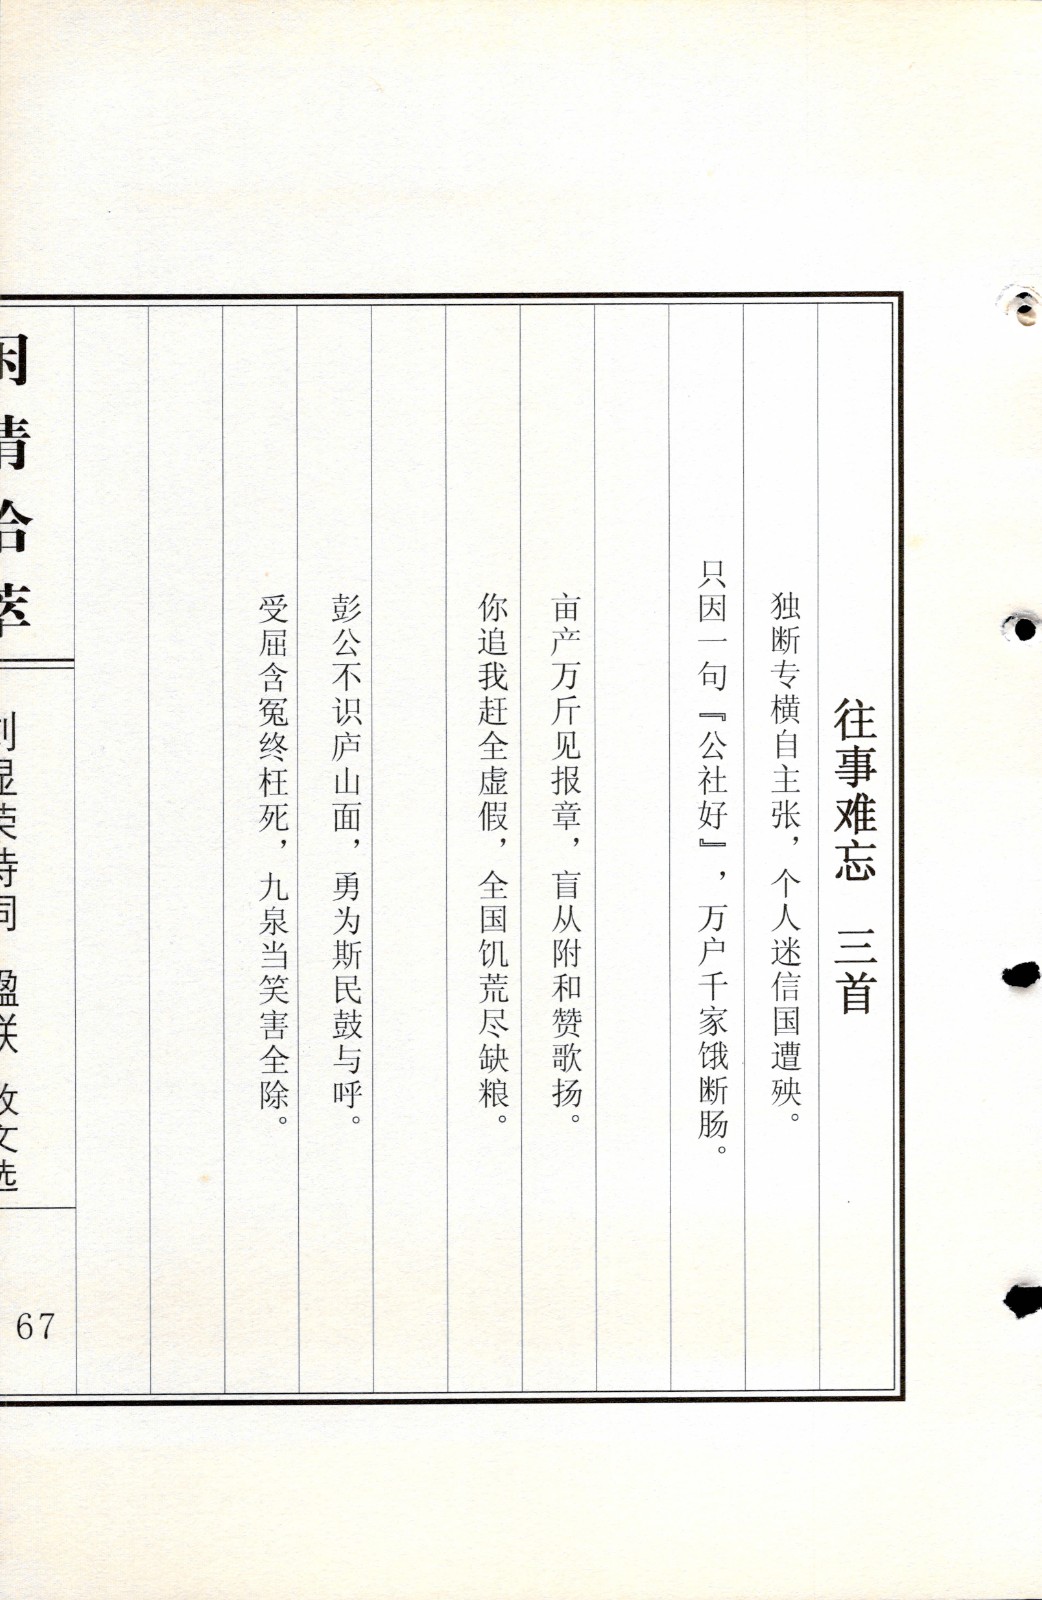 往事难忘 三首
独断专横自主张，个人迷信国遭殃。
只因一句『公社好』，万户千家饿断肠。
亩产万斤见报章，盲从附和赞歌扬。
你追我赶全虚假，全国饥荒尽缺粮。
彭公不识庐山面，勇为斯民鼓与呼。
受屈含冤终枉死，九泉当笑害全除。
闲情拾萃
刘显荣诗词 楹联 散文选
67